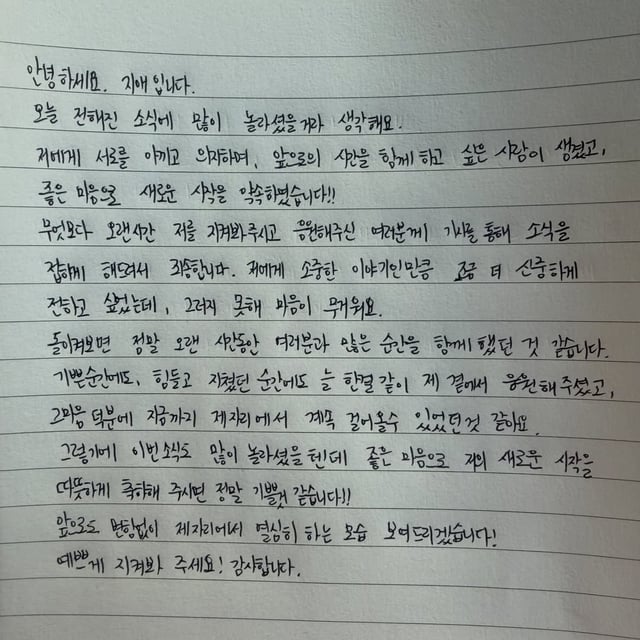 안녕하세요. 지애입니다.
오늘 전해진 소식에 많이 놀라셨을거라 생각해요.
저에게 서로를 아끼고 의지하며, 앞으로의 시간을 함께하고 싶은 사람이 생겼고,
좋은 마음으로 새로운 시작을 약속하였습니다!!
무엇보다 오랜시간 저를 지켜봐주시고 응원해주신 여러분께 기사를 통해 소식을
접하게 해드려서 죄송합니다. 저에게 소중한 이야기인만큼 조금 더 신중하게
전하고 싶었는데, 그러지 못해 마음이 무거워요.
돌이켜보면 정말 오랜 시간동안 여러분과 많은 순간을 함께 했던 것 같습니다.
기쁜순간에도, 힘들고 지쳤던 순간에도 늘 한결 같이 제 곁에서 응원해 주셨고,
그마음 덕분에 지금까지 제자리에서 계속 걸어올수 있었던것 같아요.
그렇기에 이번소식도 많이 놀라셨을텐데 좋은 마음으로 저의 새로운 시작을
따뜻하게 축하해 주시면 정말 기쁠것 같습니다!!
앞으로도 변함없이 제자리에서 열심히 하는 모습 보여드리겠습니다!
예쁘게 지켜봐 주세요! 감사합니다.